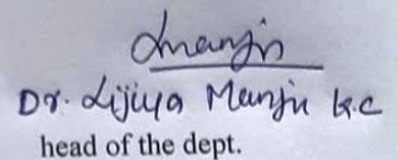 Dr. Lijiya Manju K.C
head of the dept.